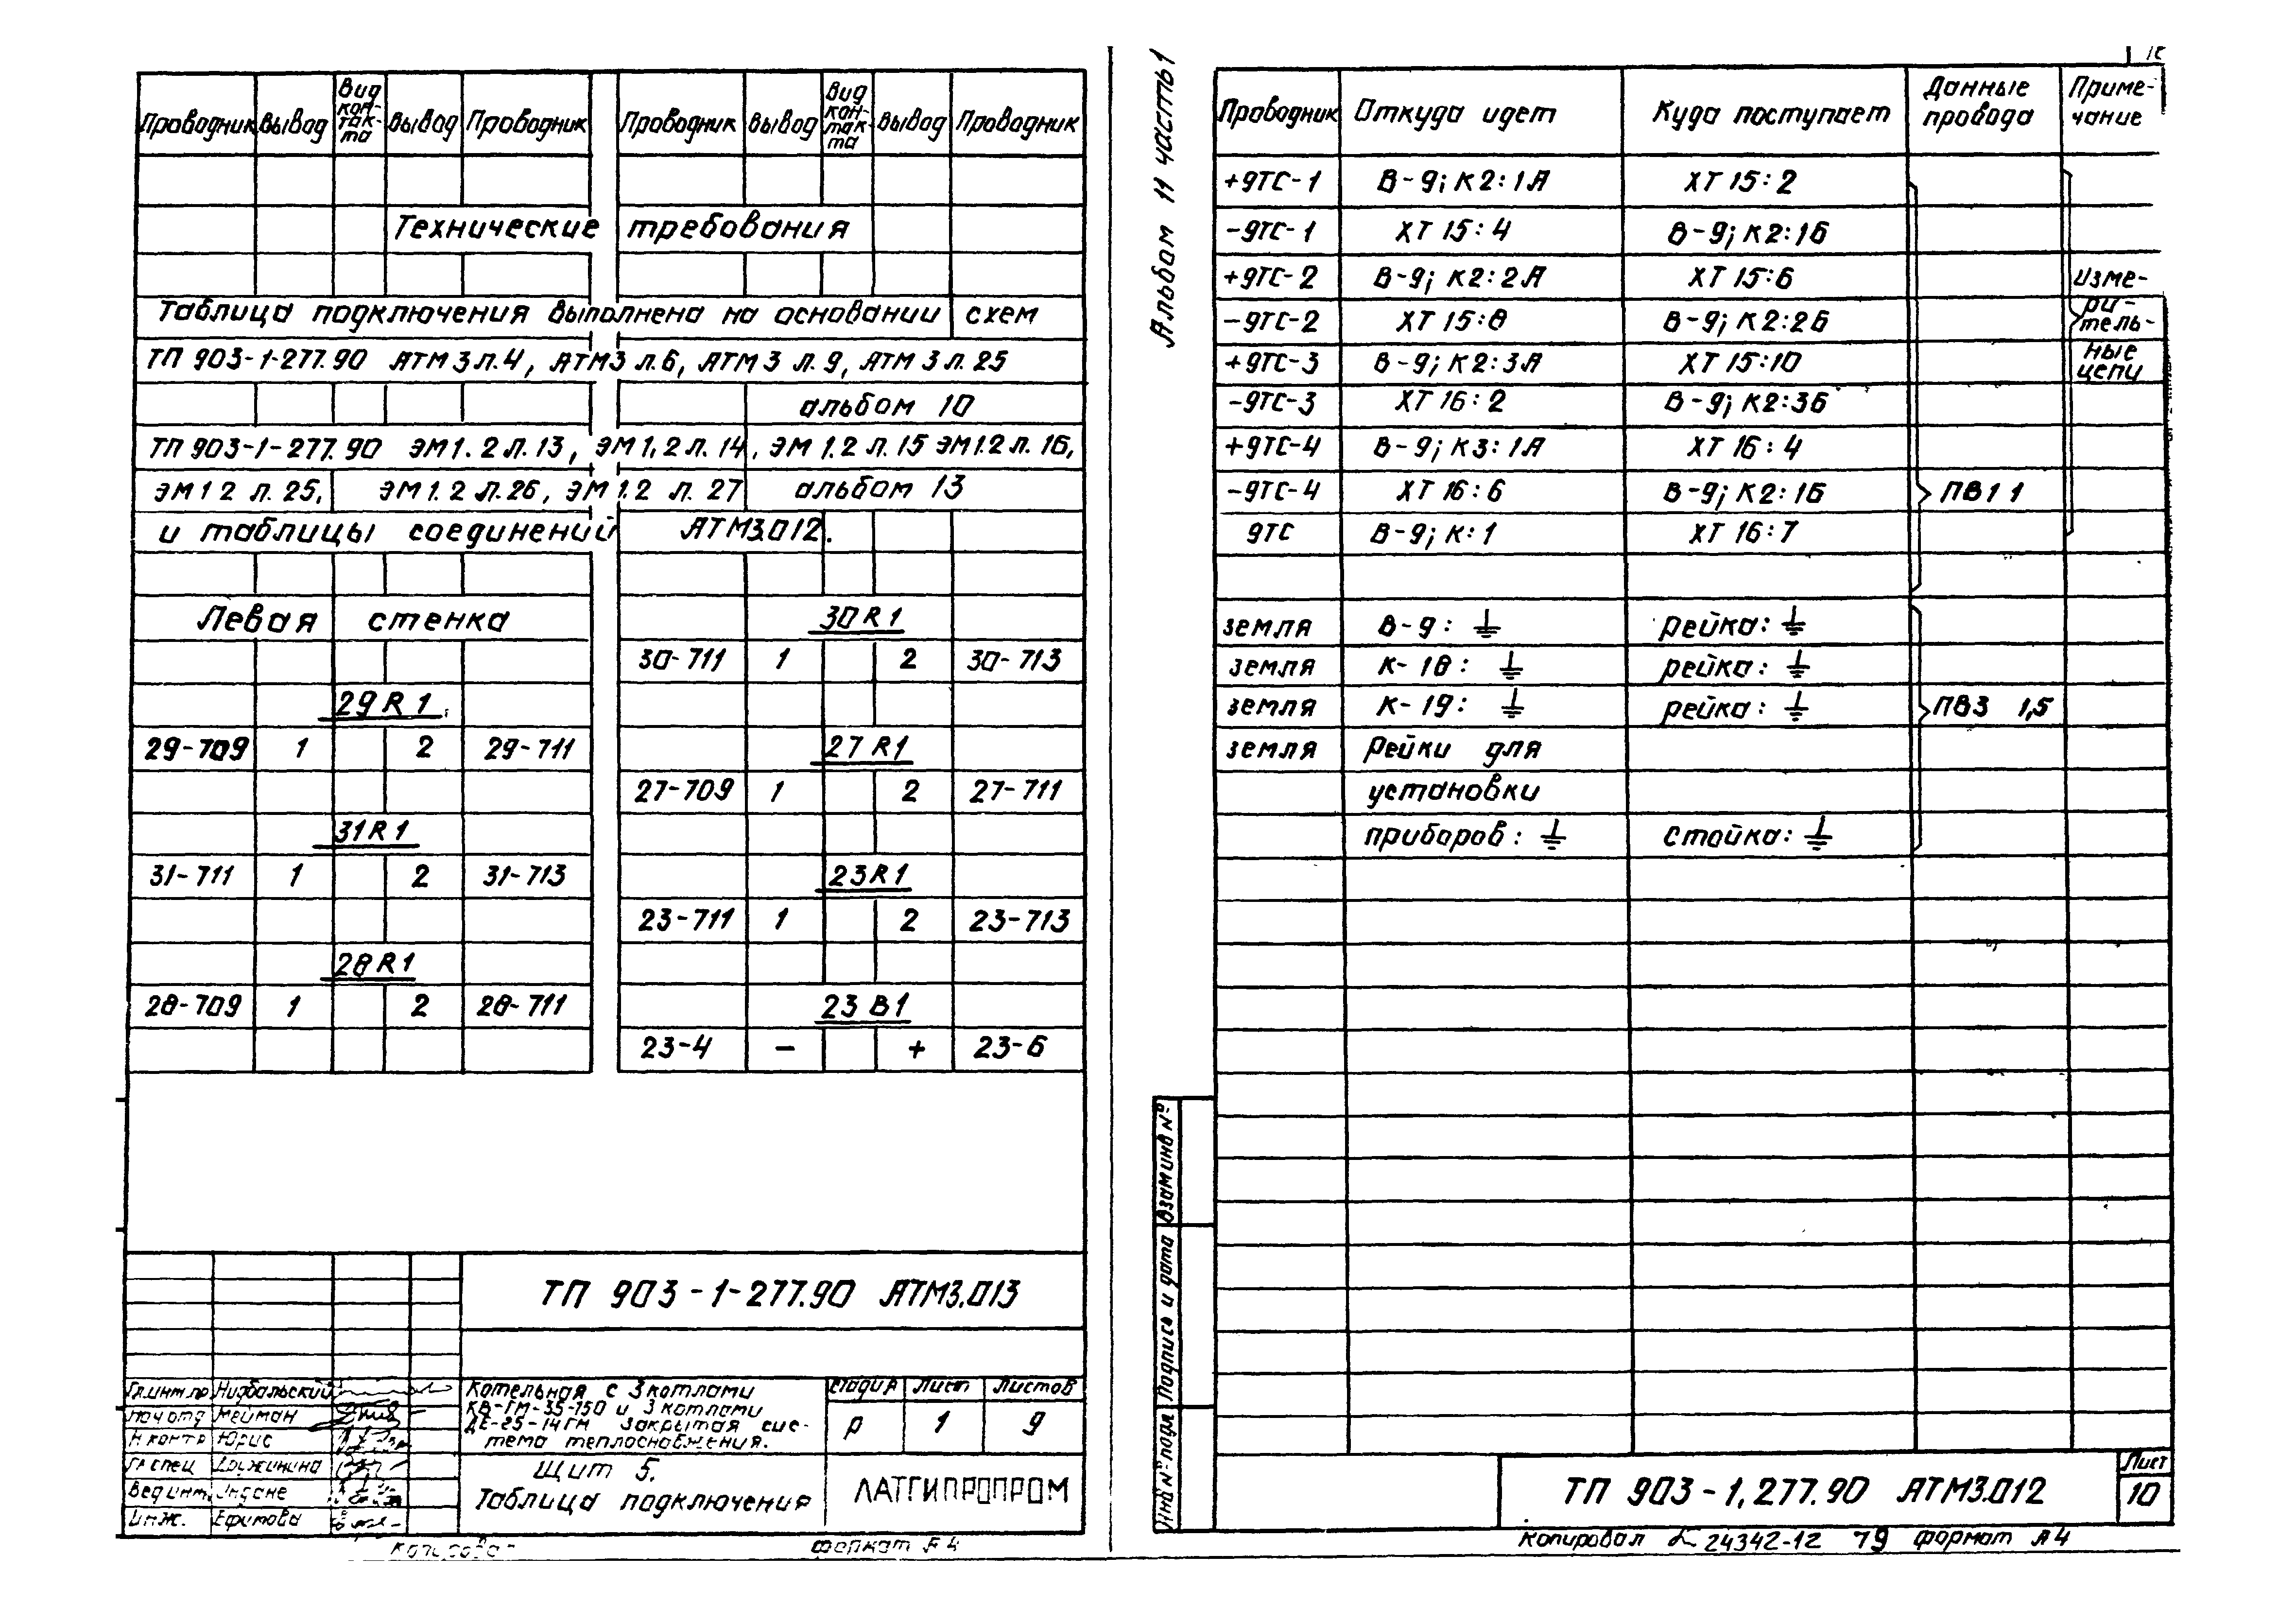 Проводник Вывод Вид кон-так-та Вывод Проводник Проводник Вывод Вид кон-так-та Вывод Проводник
Технические требования
Таблица подключения выполнена на основании схем
ТП 903-1-277.90 АТМ3 л.4, АТМ3 л.6, АТМ3 л.9, АТМ3 л.25
альбом 10
ТП 903-1-277.90 ЭМ1.2 л.13, ЭМ1.2 л.14, ЭМ1.2 л.15 ЭМ1.2 л.16,
ЭМ1 2 л.25, ЭМ1.2 л.26, ЭМ1.2 л.27 альбом 13
и таблицы соединений АТМ3.012.
Левая стенка
29R1
29-709 1 2 29-711
31R1
31-711 1 2 31-713
28R1
28-709 1 2 28-711
30R1
30-711 1 2 30-713
27R1
27-709 1 2 27-711
23R1
23-711 1 2 23-713
23В1
23-4 − + 23-6
ТП 903-1-277.90 АТМ3.013
Гл.инж.пр Нидбальский
Нач отд Мейман
Н контр Юрис
Гл спец Дружинина
Вед инж.
Инж. Ефимова
Котельная с 3 котлами
КВ-ГМ-35-150 и 3 котлами
ДЕ-25-14ГМ Закрытая сис-
тема теплоснабжения.
Щит 5.
Таблица подключения
Стадия Лист Листов
Р 1 9
ЛАТГИПРОПРОМ
Копировал Формат А4
Альбом 11 часть 1
Проводник Откуда идет Куда поступает Данные провода Приме-чание
+9ТС-1 В-9; К2:1А ХТ15:2
-9ТС-1 ХТ15:4 В-9; К2:1Б
+9ТС-2 В-9; К2:2А ХТ15:6
-9ТС-2 ХТ15:8 В-9; К2:2Б
+9ТС-3 В-9; К2:3А ХТ15:10
-9ТС-3 ХТ16:2 В-9; К2:3Б
+9ТС-4 В-9; К3:1А ХТ16:4
-9ТС-4 ХТ16:6 В-9; К2:1Б
9ТС В-9; К:1 ХТ16:7
ПВ1 1
Изме-
ри-
тель-
ные
цепи
земля В-9: ⏚ рейка: ⏚
земля К-18: ⏚ рейка: ⏚
земля К-19: ⏚ рейка: ⏚
ПВ3 1,5
земля Рейки для
установки
приборов: ⏚ стойка: ⏚
Взам инв №
Подпись и дата
Инв № подл
ТП 903-1,277.90 АТМ3.012
Лист
10
Копировал 24342-12 79 формат А4